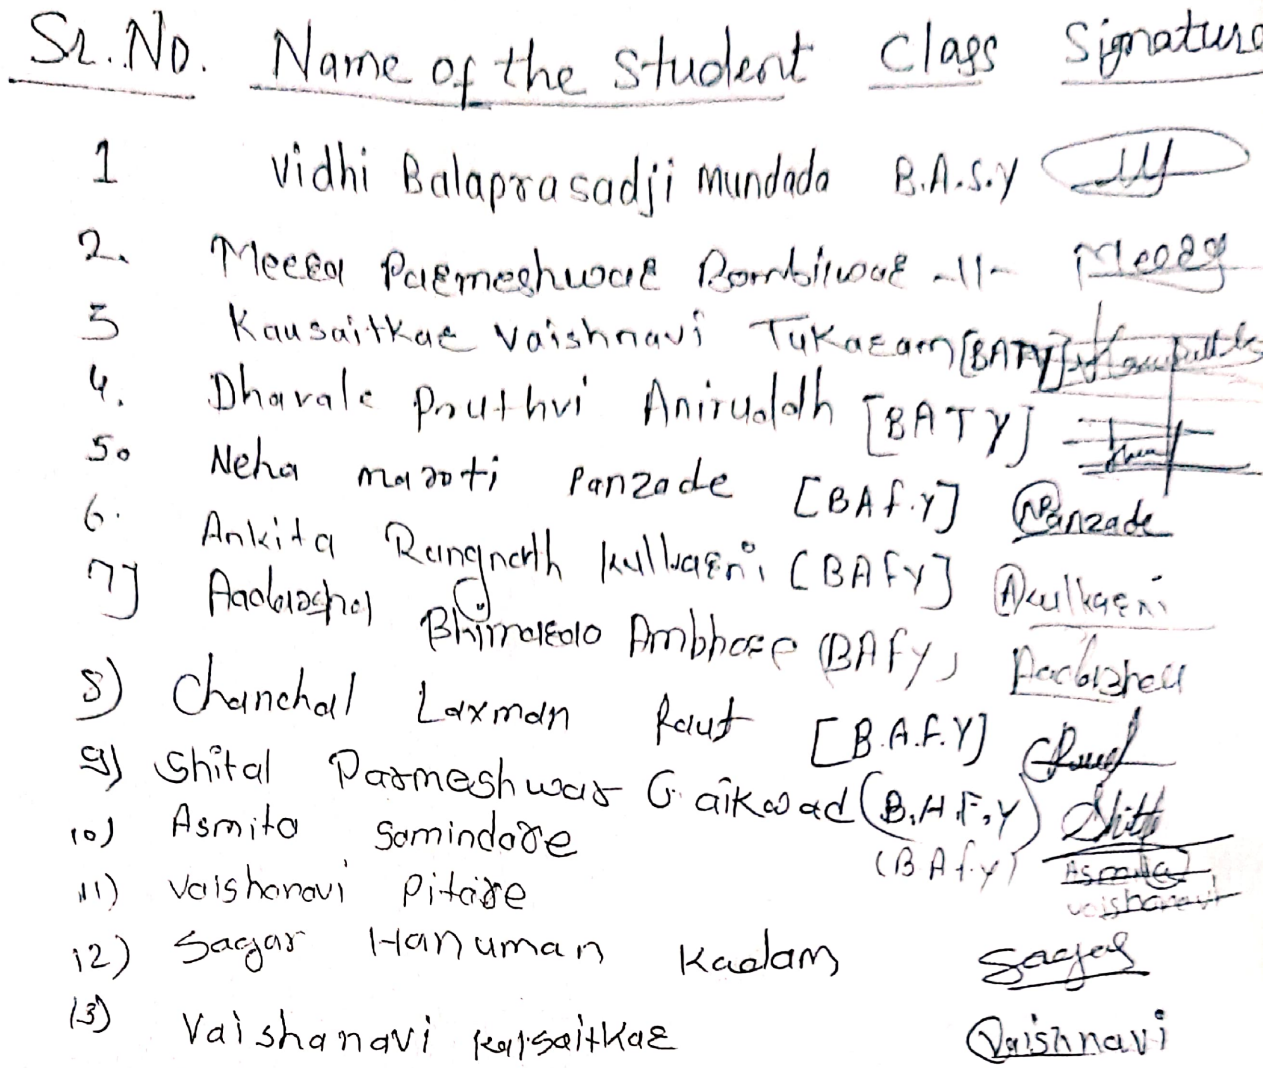 Sr. No. Name of the Student Class Signature
1 Vidhi Balaprasadji Mundada B.A.S.Y
2. Meera Parmeshwar Bombilwar -11- Meera
3 Kausaitkar Vaishnavi Tukaram [BATY]
4. Dhavale Pruthvi Aniruddh [BATY]
5. Neha maroti Panzade [BAf.Y] NPanzade
6. Ankita Rangnath kulkarni (BAFY] Akulkarni
7] Aadarsha Bhimarao Ambhore (BAfy)
8) Chanchal Laxman Raut [B.A.F.Y]
9) Shital Parmeshwar Gaikwad (B.A.F.Y)
10) Asmita Samindare (BAf.y) Asmita
11) Vaishanavi Pitare vaishanavi
12) Sagar Hanuman Kadam Sagar
13) Vaishanavi kapsaitkar Vaishnavi